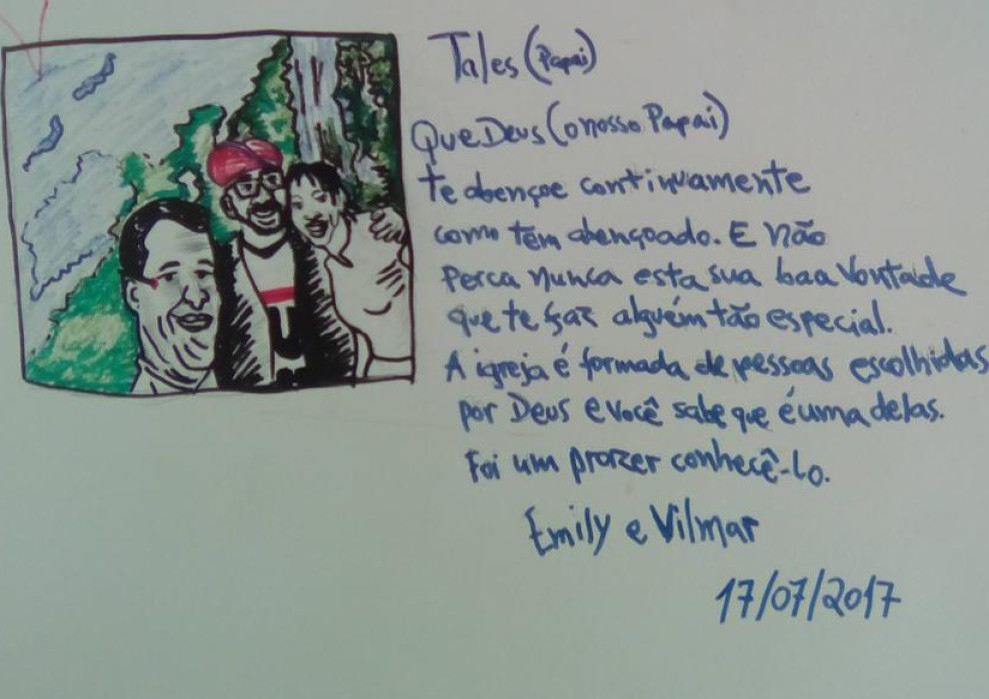 Tales (Papai)
Que Deus (o nosso Papai)
te abençoe continuamente
como têm abençoado. E não
perca nunca esta sua boa vontade
que te faz alguém tão especial.
A igreja é formada de pessoas escolhidas
por Deus e você sabe que é uma delas.
Foi um prazer conhecê-lo.
Emily e Vilmar
17/07/2017